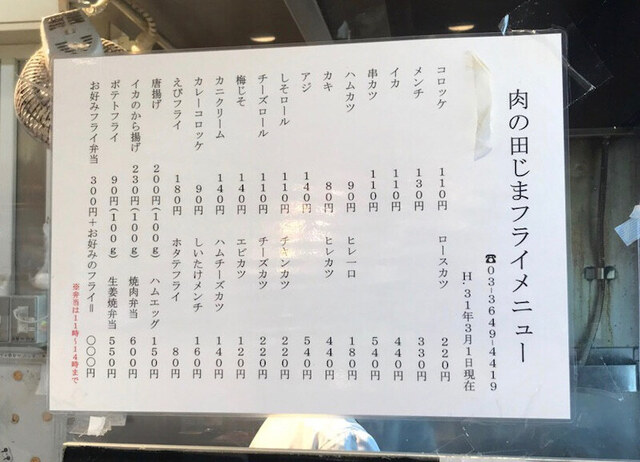 肉の田じまフライメニュー
☎03-3649-4419
H.31年3月1日現在
コロッケ 110円 ロースカツ 220円
メンチ 130円 330円
イカ 110円 440円
串カツ 110円 540円
ハムカツ 90円 ヒレ一口 180円
カキ 80円 ヒレカツ 440円
アジ 140円 540円
しそロール 110円 チキンカツ 220円
チーズロール 110円 チーズカツ 220円
梅じそ 140円 エビカツ 120円
カニクリーム 140円 ハムチーズカツ 140円
カレーコロッケ 90円 しいたけメンチ 160円
えびフライ 180円 ホタテフライ 80円
唐揚げ 200円(100g) ハムエッグ 150円
イカのから揚げ 230円(100g) 焼肉弁当 600円
ポテトフライ 90円(100g) 生姜焼弁当 550円
お好みフライ弁当 300円+お好みのフライ= 〇〇〇円
※弁当は11時~14時まで